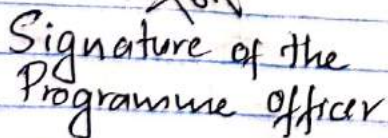 Signature of the
Programme Officer